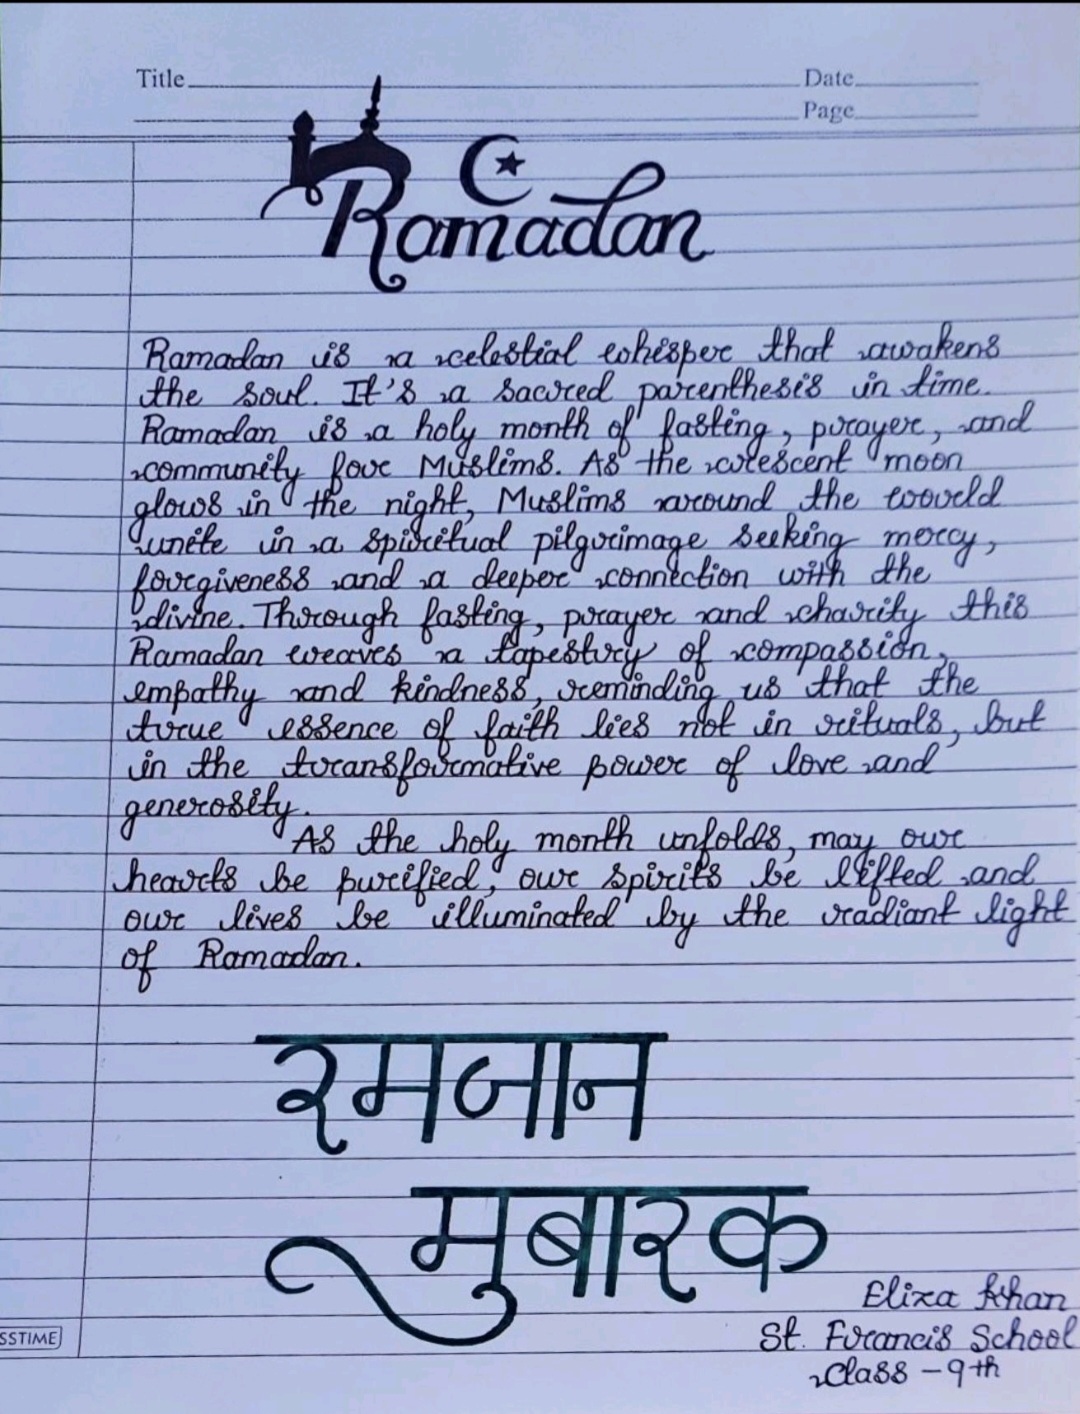 Title
Date
Page
Ramadan
Ramadan is a celestial whisper that awakens
the soul. It's a sacred parenthesis in time.
Ramadan is a holy month of fasting, prayer, and
community for Muslims. As the crescent moon
glows in the night, Muslims around the world
unite in a spiritual pilgrimage seeking mercy,
forgiveness and a deeper connection with the
divine. Through fasting, prayer and charity this
Ramadan weaves a tapestry of compassion,
empathy and kindness, reminding us that the
true essence of faith lies not in rituals, but
in the transformative power of love and
generosity.
As the holy month unfolds, may our
hearts be purified, our spirits be lifted and
our lives be illuminated by the radiant light
of Ramadan.
रमजान
मुबारक
Eliza Khan
St. Francis School
Class - 9th
SSTIME